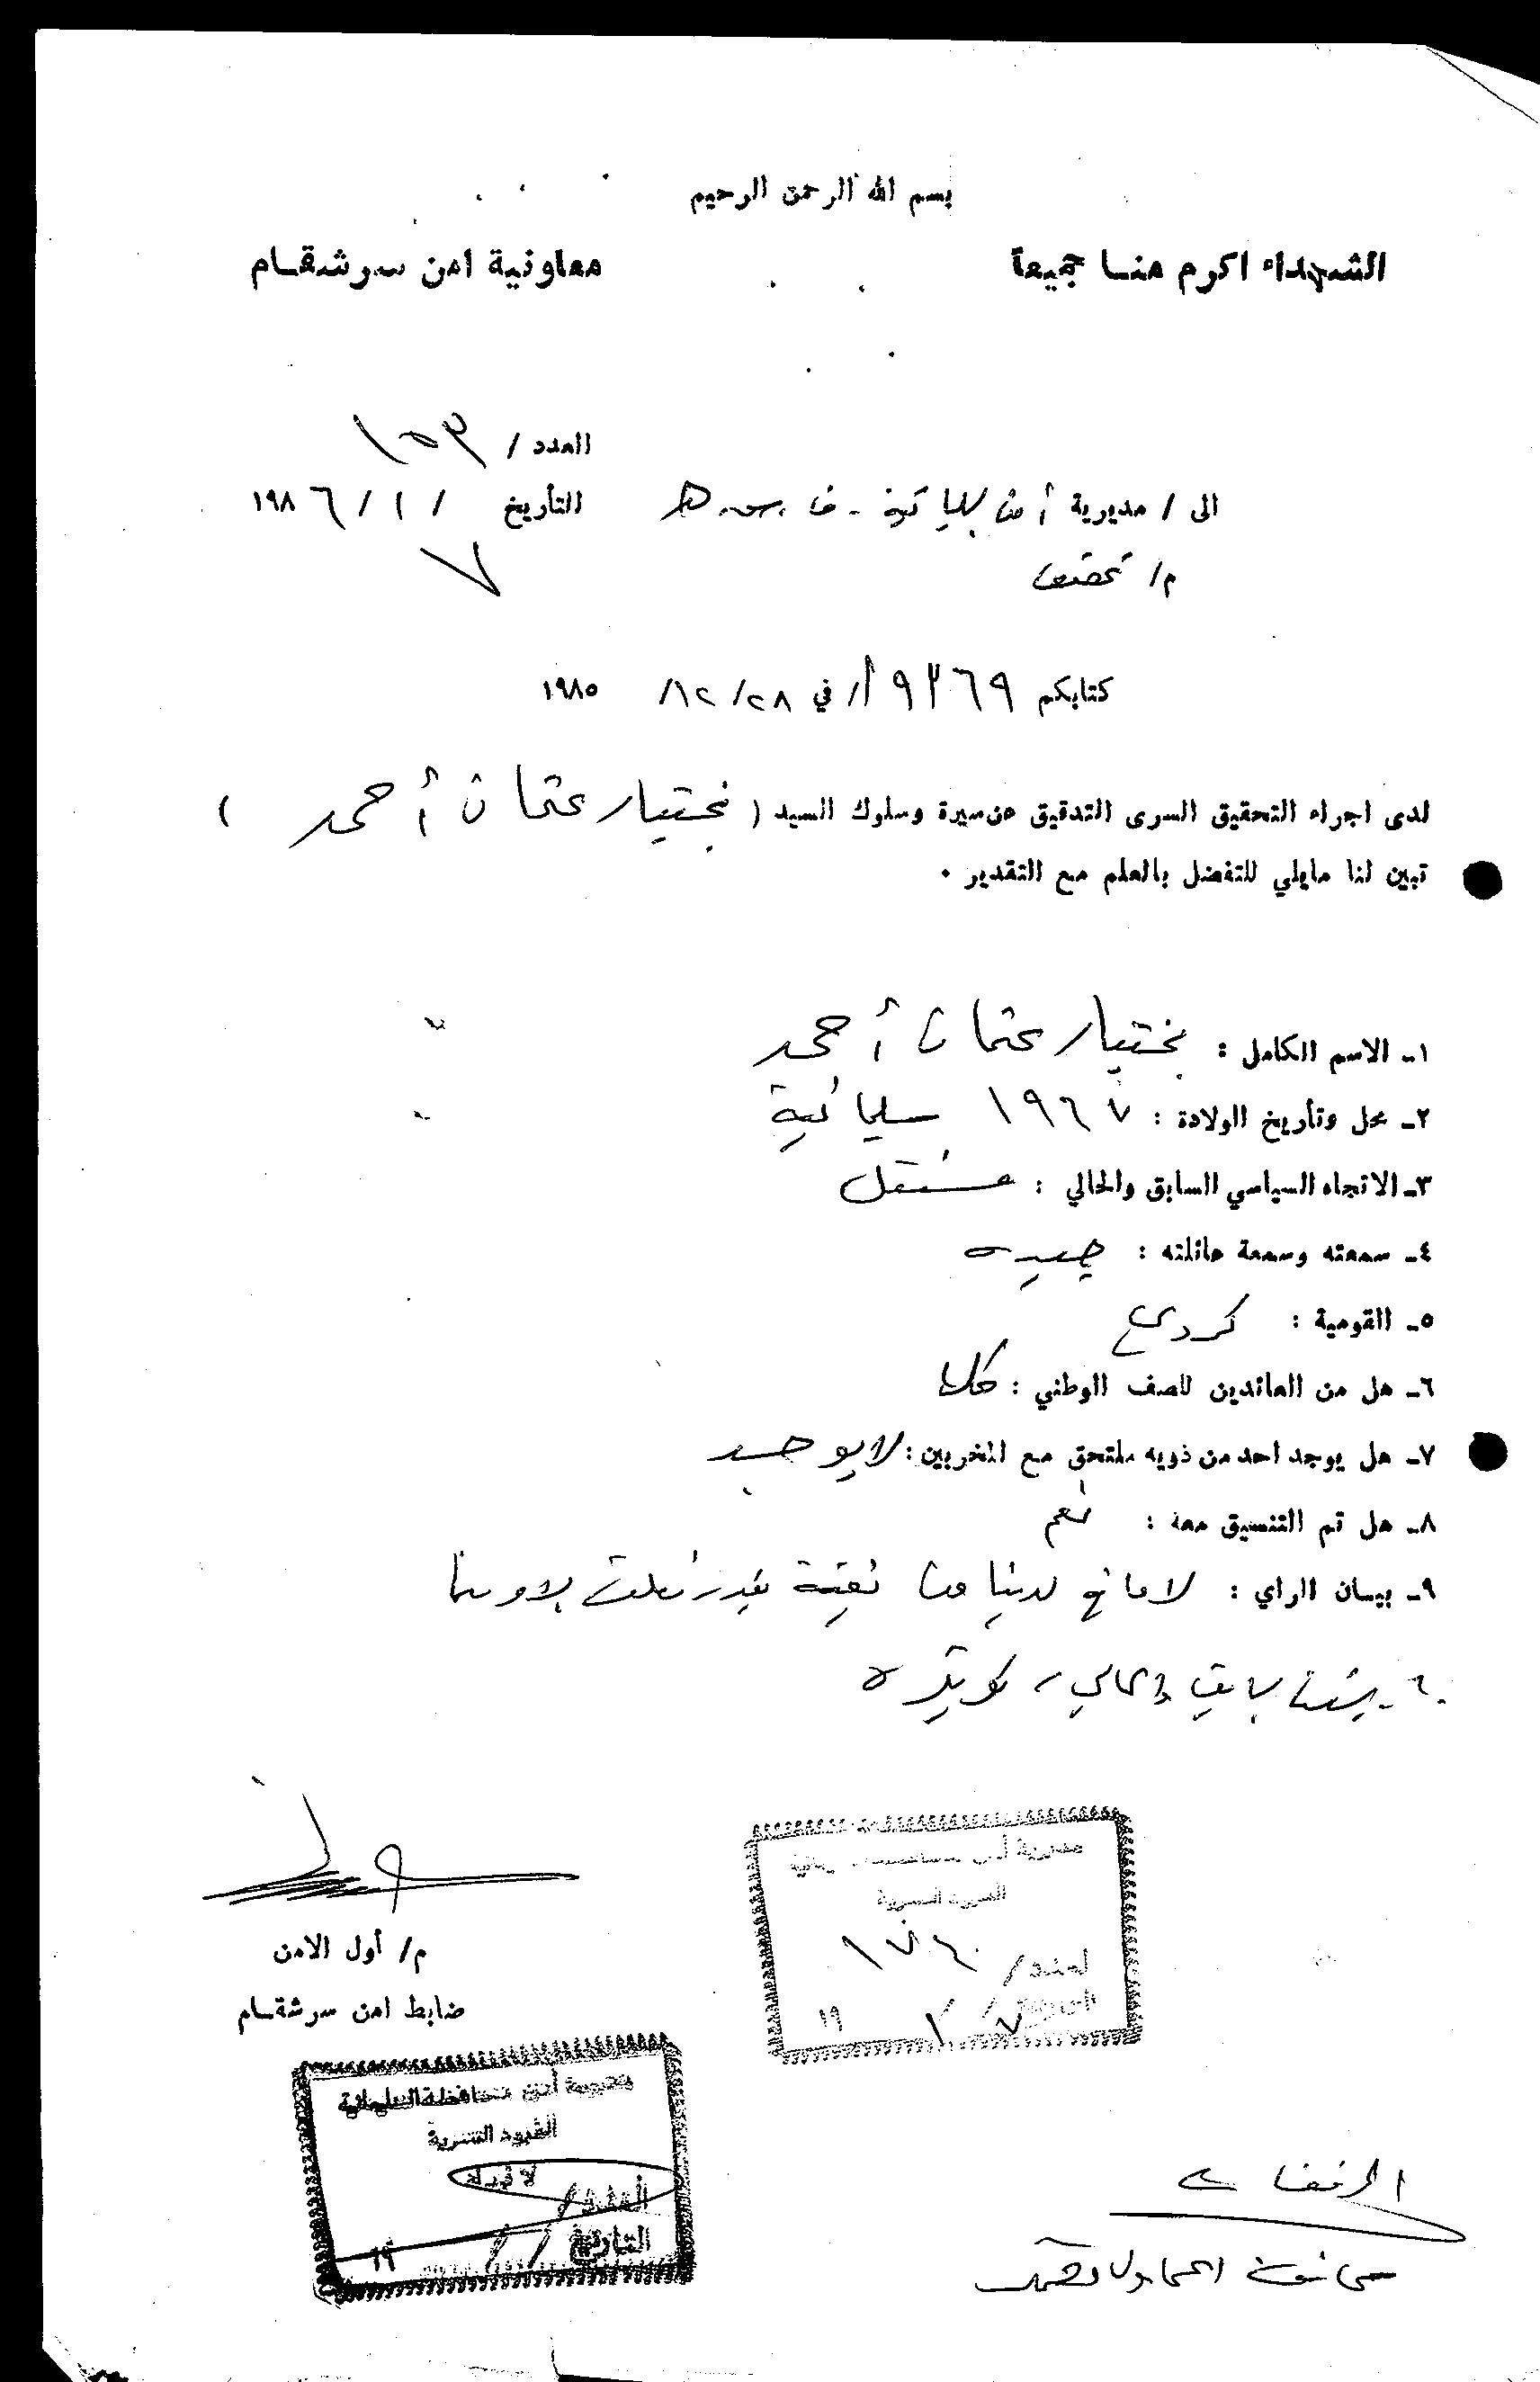 بسم الله الرحمن الرحيم
الشهداء اكرم منا جميعاً
معاونية امن سرشقام
العدد / ١٥٣
الى / مديرية أمن
التأريخ ٧ / ١ / ١٩٨٦
م/ تحقيق
كتابكم ٩٣٦٩ في ٢٨/ ١٢/ ١٩٨٥
لدى اجراء التحقيق السرى التدقيق عن سيرة وسلوك السيد ( بختيار عثمان أحمد )
تبين لنا مايلي للتفضل بالعلم مع التقدير ٠
١- الاسم الكامل : بختيار عثمان أحمد
٢- محل وتأريخ الولادة : ١٩٦٧ سليمانية
٣- الاتجاه السياسي السابق والحالي : مستقل
٤- سمعته وسمعة عائلته : جيده
٥- القومية : كردي
٦- هل من العائدين للصف الوطني : كلا
٧- هل يوجد احد من ذويه ملتحق مع المخربين : لا يوجد
٨- هل تم التنسيق معه : نعم
٩- بيان الراي : لا مانع لدينا من
م/ أول الامن
ضابط امن سرشقام
القيود السرية
العدد / ١٧٦٠
التاريخ ٧ / ١ / ١٩
مديرية أمن محافظة السليمانية
القيود السرية
العدد /
التاريخ / / ١٩
المرفقات